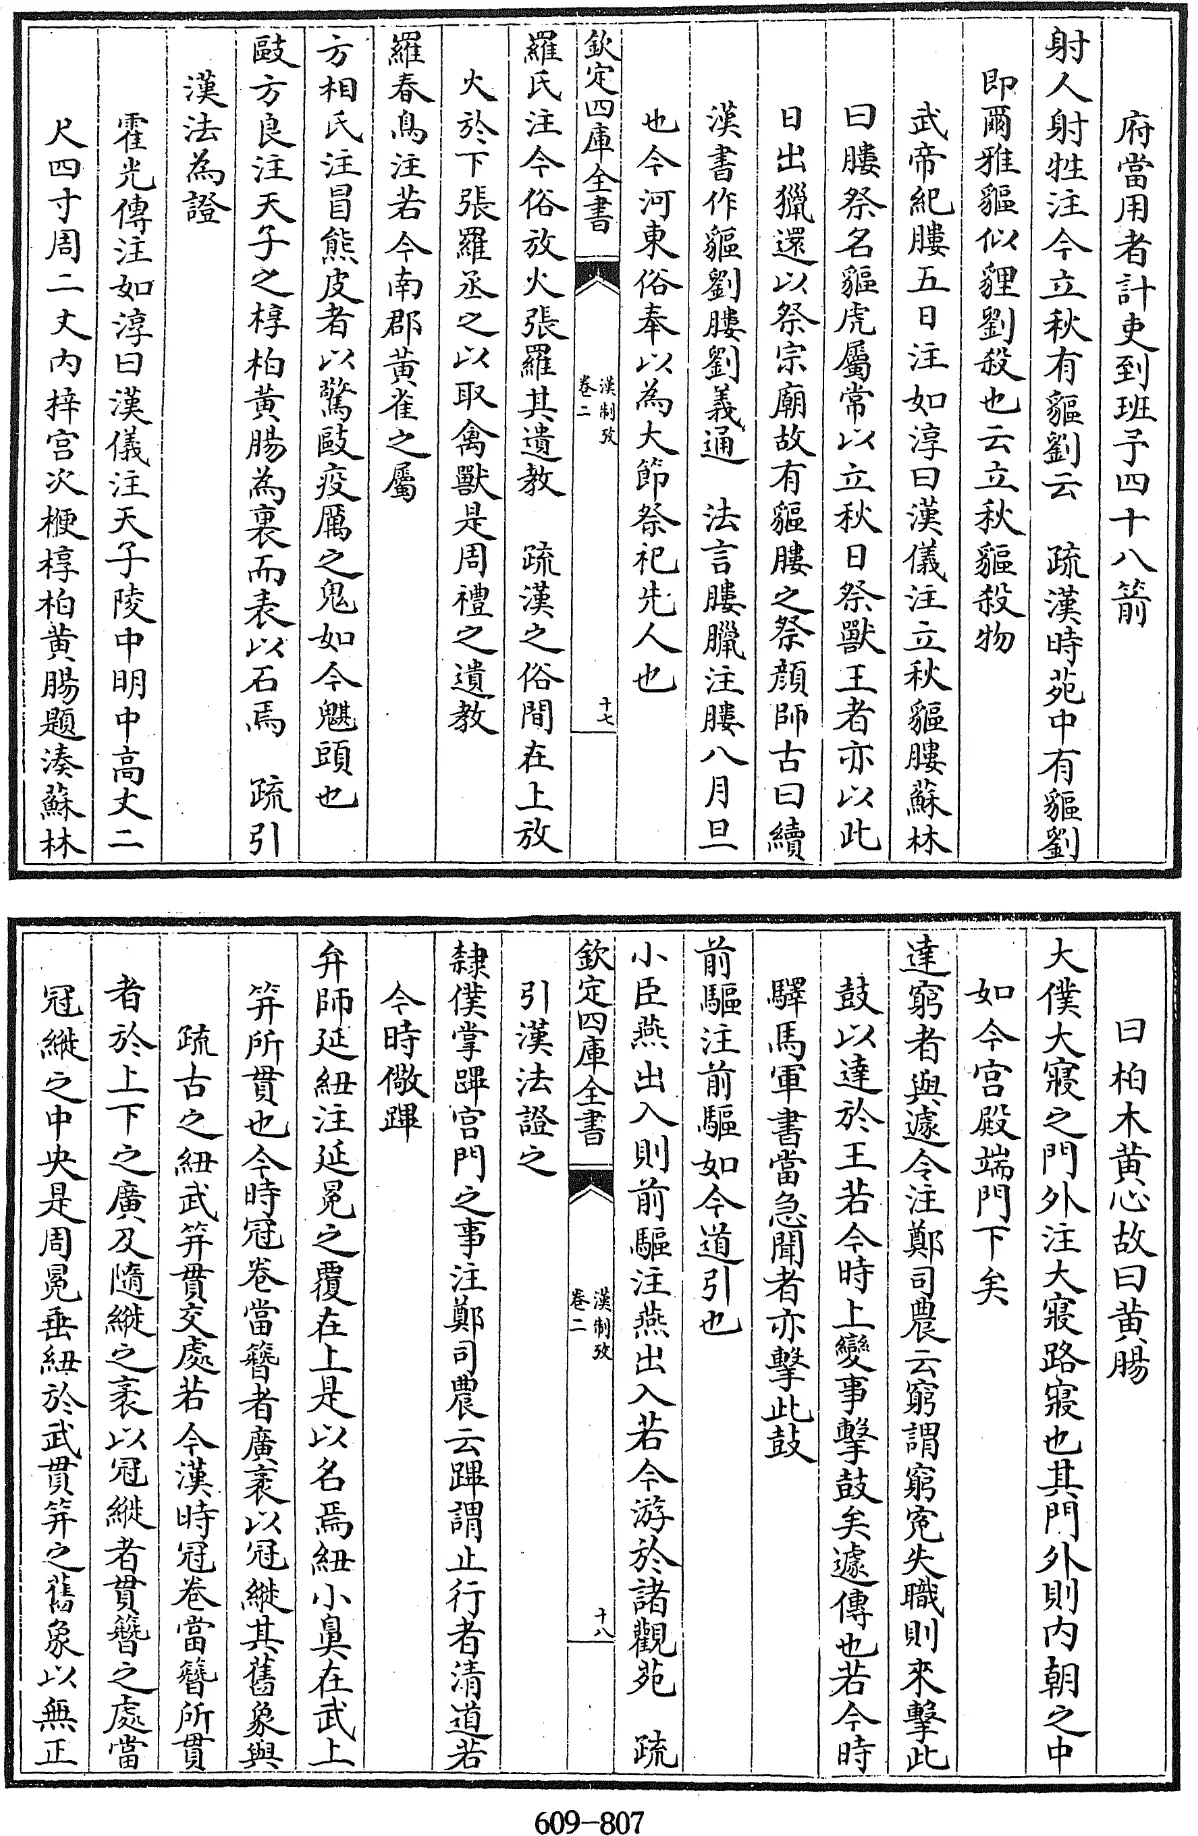 府當用者計吏到班予四十八箭
射人射牲注今立秋有貙劉云　疏漢時苑中有貙劉
即爾雅貙似貍劉殺也云立秋貙殺物
武帝紀膢五日注如淳曰漢儀注立秋貙膢蘇林
曰膢祭名貙虎屬常以立秋日祭獸王者亦以此
日出獵還以祭宗廟故有貙膢之祭顔師古曰續
漢書作貙劉膢劉義通　法言膢臘注膢八月旦
也今河東俗奉以為大節祭祀先人也
欽定四庫全書　漢制攷　卷二　十七
羅氏注今俗放火張羅其遺教　疏漢之俗間在上放
火於下張羅丞之以取禽獸是周禮之遺教
羅春鳥注若今南郡黄雀之屬
方相氏注冒熊皮者以驚敺疫厲之鬼如今魌頭也
敺方良注天子之椁柏黄腸為裏而表以石焉　疏引
漢法為證
霍光傳注如淳曰漢儀注天子陵中明中高丈二
尺四寸周二丈内梓宫次楩椁柏黄腸題湊蘇林
曰柏木黄心故曰黄腸
大僕大寢之門外注大寢路寢也其門外則内朝之中
如今宫殿端門下矣
達窮者與遽令注鄭司農云窮謂窮寃失職則來擊此
鼓以達於王若今時上變事擊鼓矣遽傳也若今時
驛馬軍書當急聞者亦擊此鼓
前驅注前驅如今道引也
小臣燕出入則前驅注燕出入若今游於諸觀苑　疏
引漢法證之
欽定四庫全書　漢制攷　卷二　十八
隸僕掌蹕宫門之事注鄭司農云蹕謂止行者清道若
今時儆蹕
弁師延紐注延冕之覆在上是以名焉紐小鼻在武上
笄所貫也今時冠卷當簪者廣袤以冠縰其舊象與
疏古之紐武笄貫交處若今漢時冠卷當簪所貫
者於上下之廣及隨縰之袤以冠縰者貫簪之處當
冠縰之中央是周冕垂紐於武貫笄之舊象以無正
609-807